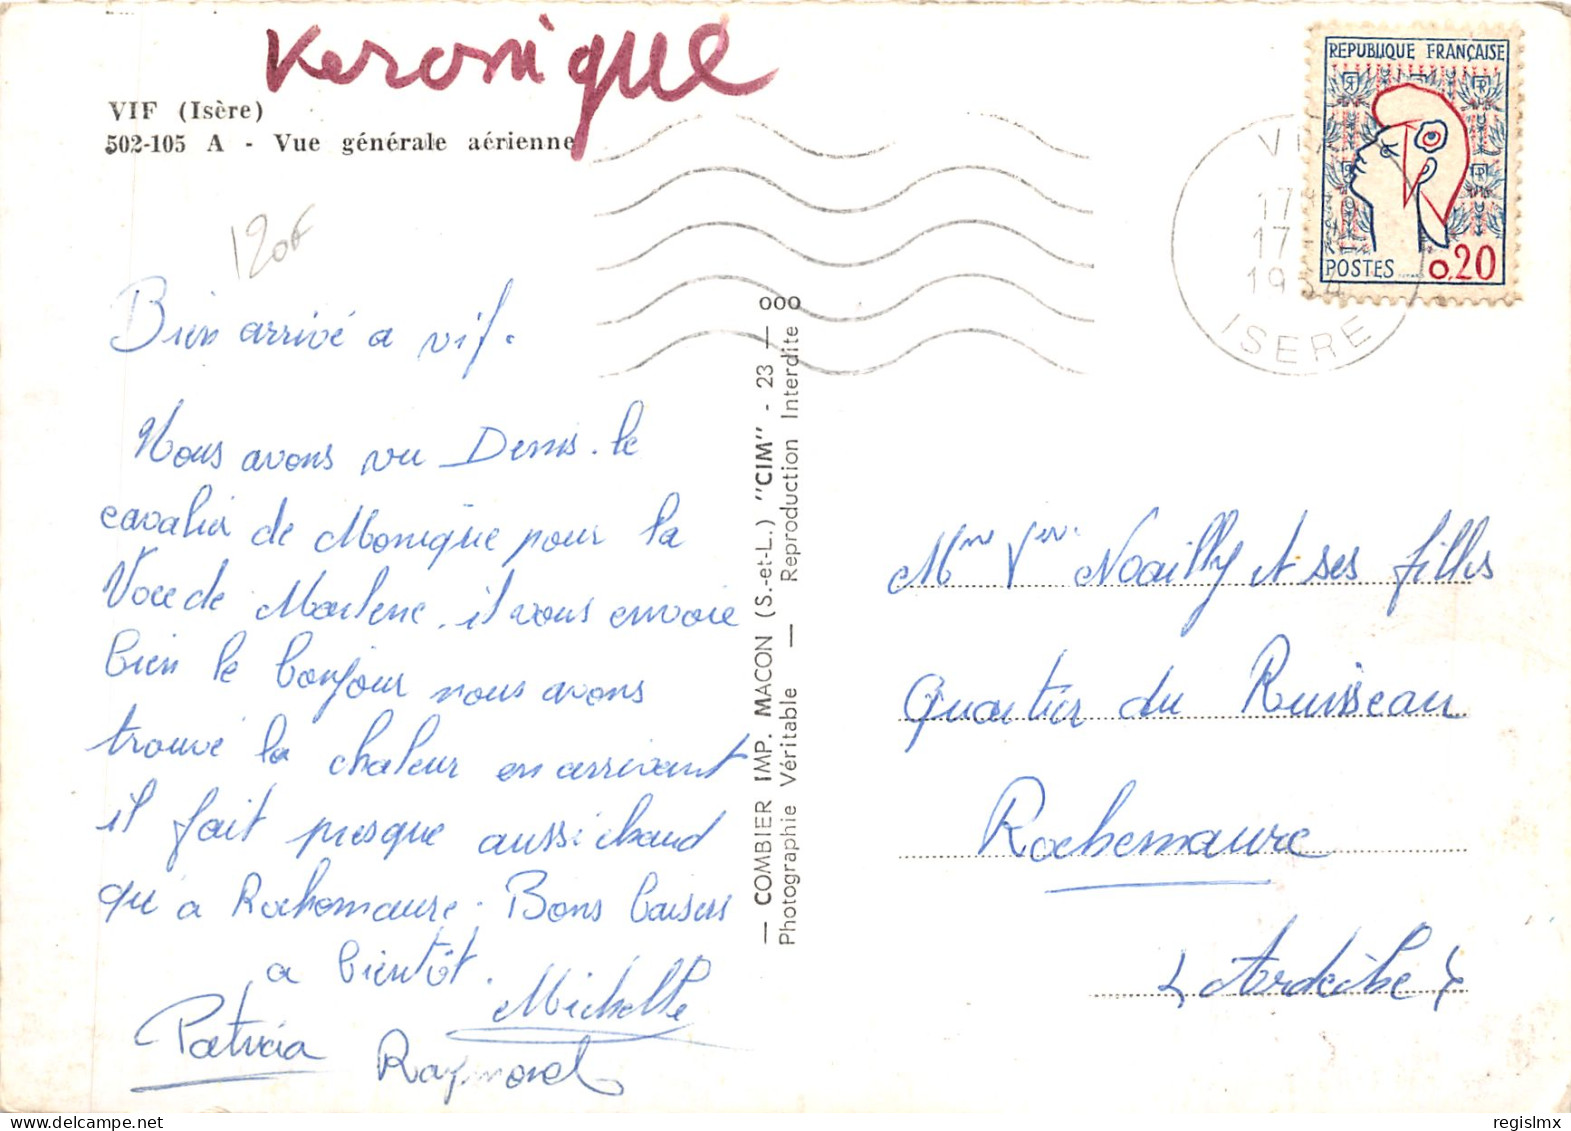 Veronique
VIF (Isère)
502-105 A - Vue générale aérienne
120F
Bien arrivé a vif.
Nous avons vu Denis. le
cavalier de Monique pour la
Voce de Marlene. il vous envoie
bien le bonjour nous avons
trouvé la chaleur en arrivant
il fait presque aussi chaud
qu'a Rochemaure. Bons baisers
a bientôt.
Michelle
Patricia
Raymond
— COMBIER IMP. MACON (S.-et-L.) "CIM" - 23 — 000
Photographie Véritable — Reproduction Interdite
REPUBLIQUE FRANÇAISE
POSTES
0,20
VIF
17
17
ISERE
Mme Noailly et ses filles
Quartier du Ruisseau
Rochemaure
Ardèche
regislmx